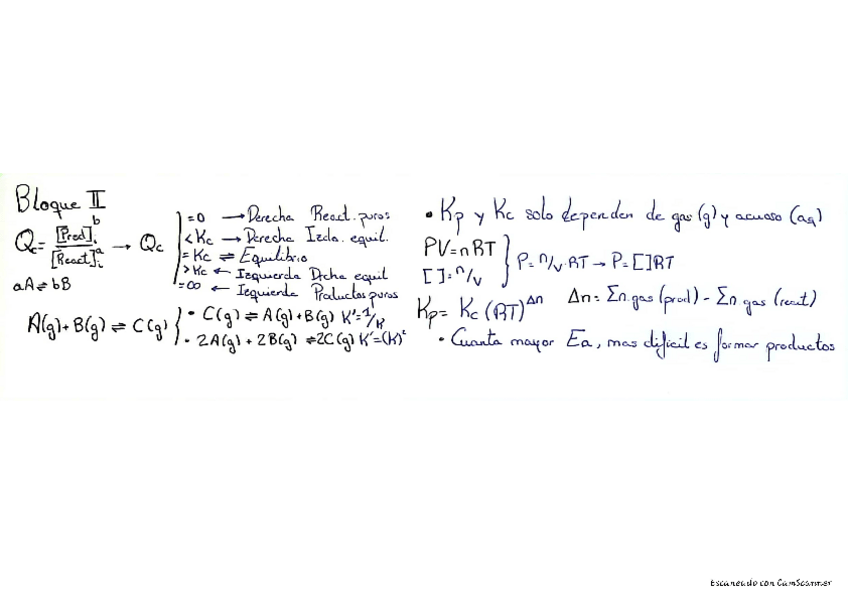 Bloque II
Qc = [Prod]ᵢᵇ / [React]ᵢᵃ → Qc
= 0 → Derecha React. puros
< Kc → Derecha Izda. equil.
= Kc ⇌ Equilibrio
> Kc ← Izquierda Dcha equil
= ∞ ← Izquierda Productos puros
aA ⇌ bB
A(g) + B(g) ⇌ C(g)
• C(g) ⇌ A(g) + B(g) K' = 1/K
• 2A(g) + 2B(g) ⇌ 2C(g) K' = (K)²
• Kp y Kc solo dependen de gas (g) y acuoso (aq)
PV = nRT
[ ] = n/V
P = n/V · RT → P = [ ]RT
Kp = Kc (RT)^Δn Δn = Σn gas (prod) - Σn gas (react)
• Cuanta mayor Ea, mas dificil es formar productos
Escaneado con CamScanner